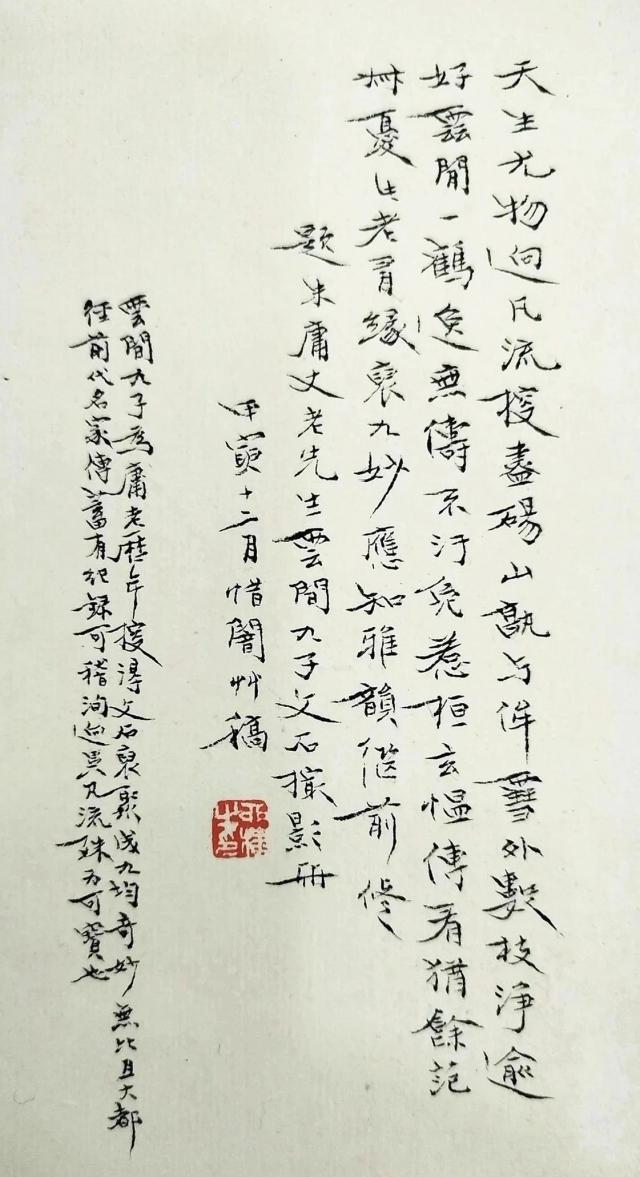 天生尤物逈凡流搜盡碭山孰与侔雪外數枝淨逾
好雲間一鶴逸無儔不汙免惹桓玄慍傳看猶餘范
憂老緣裒九妙應知雅韻繼前修
題朱庸丈老先生雲間九子文石攝影冊
甲寅十二月惜闇艸稿
雲間九子為庸老歷年搜得文石裒聚成九均奇妙無比且大都
経前代名家傳蓄有紀錄可稽洵逈異凡流殊為可寶也